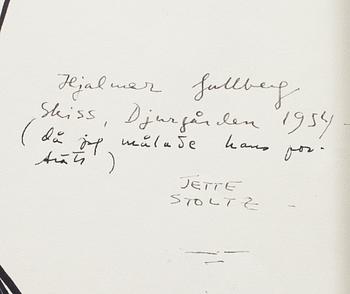 Hjalmar Gullberg
Skiss, Djurgården 1954
(då jag målade hans por-
trätt)
JETTE
STOLTZ